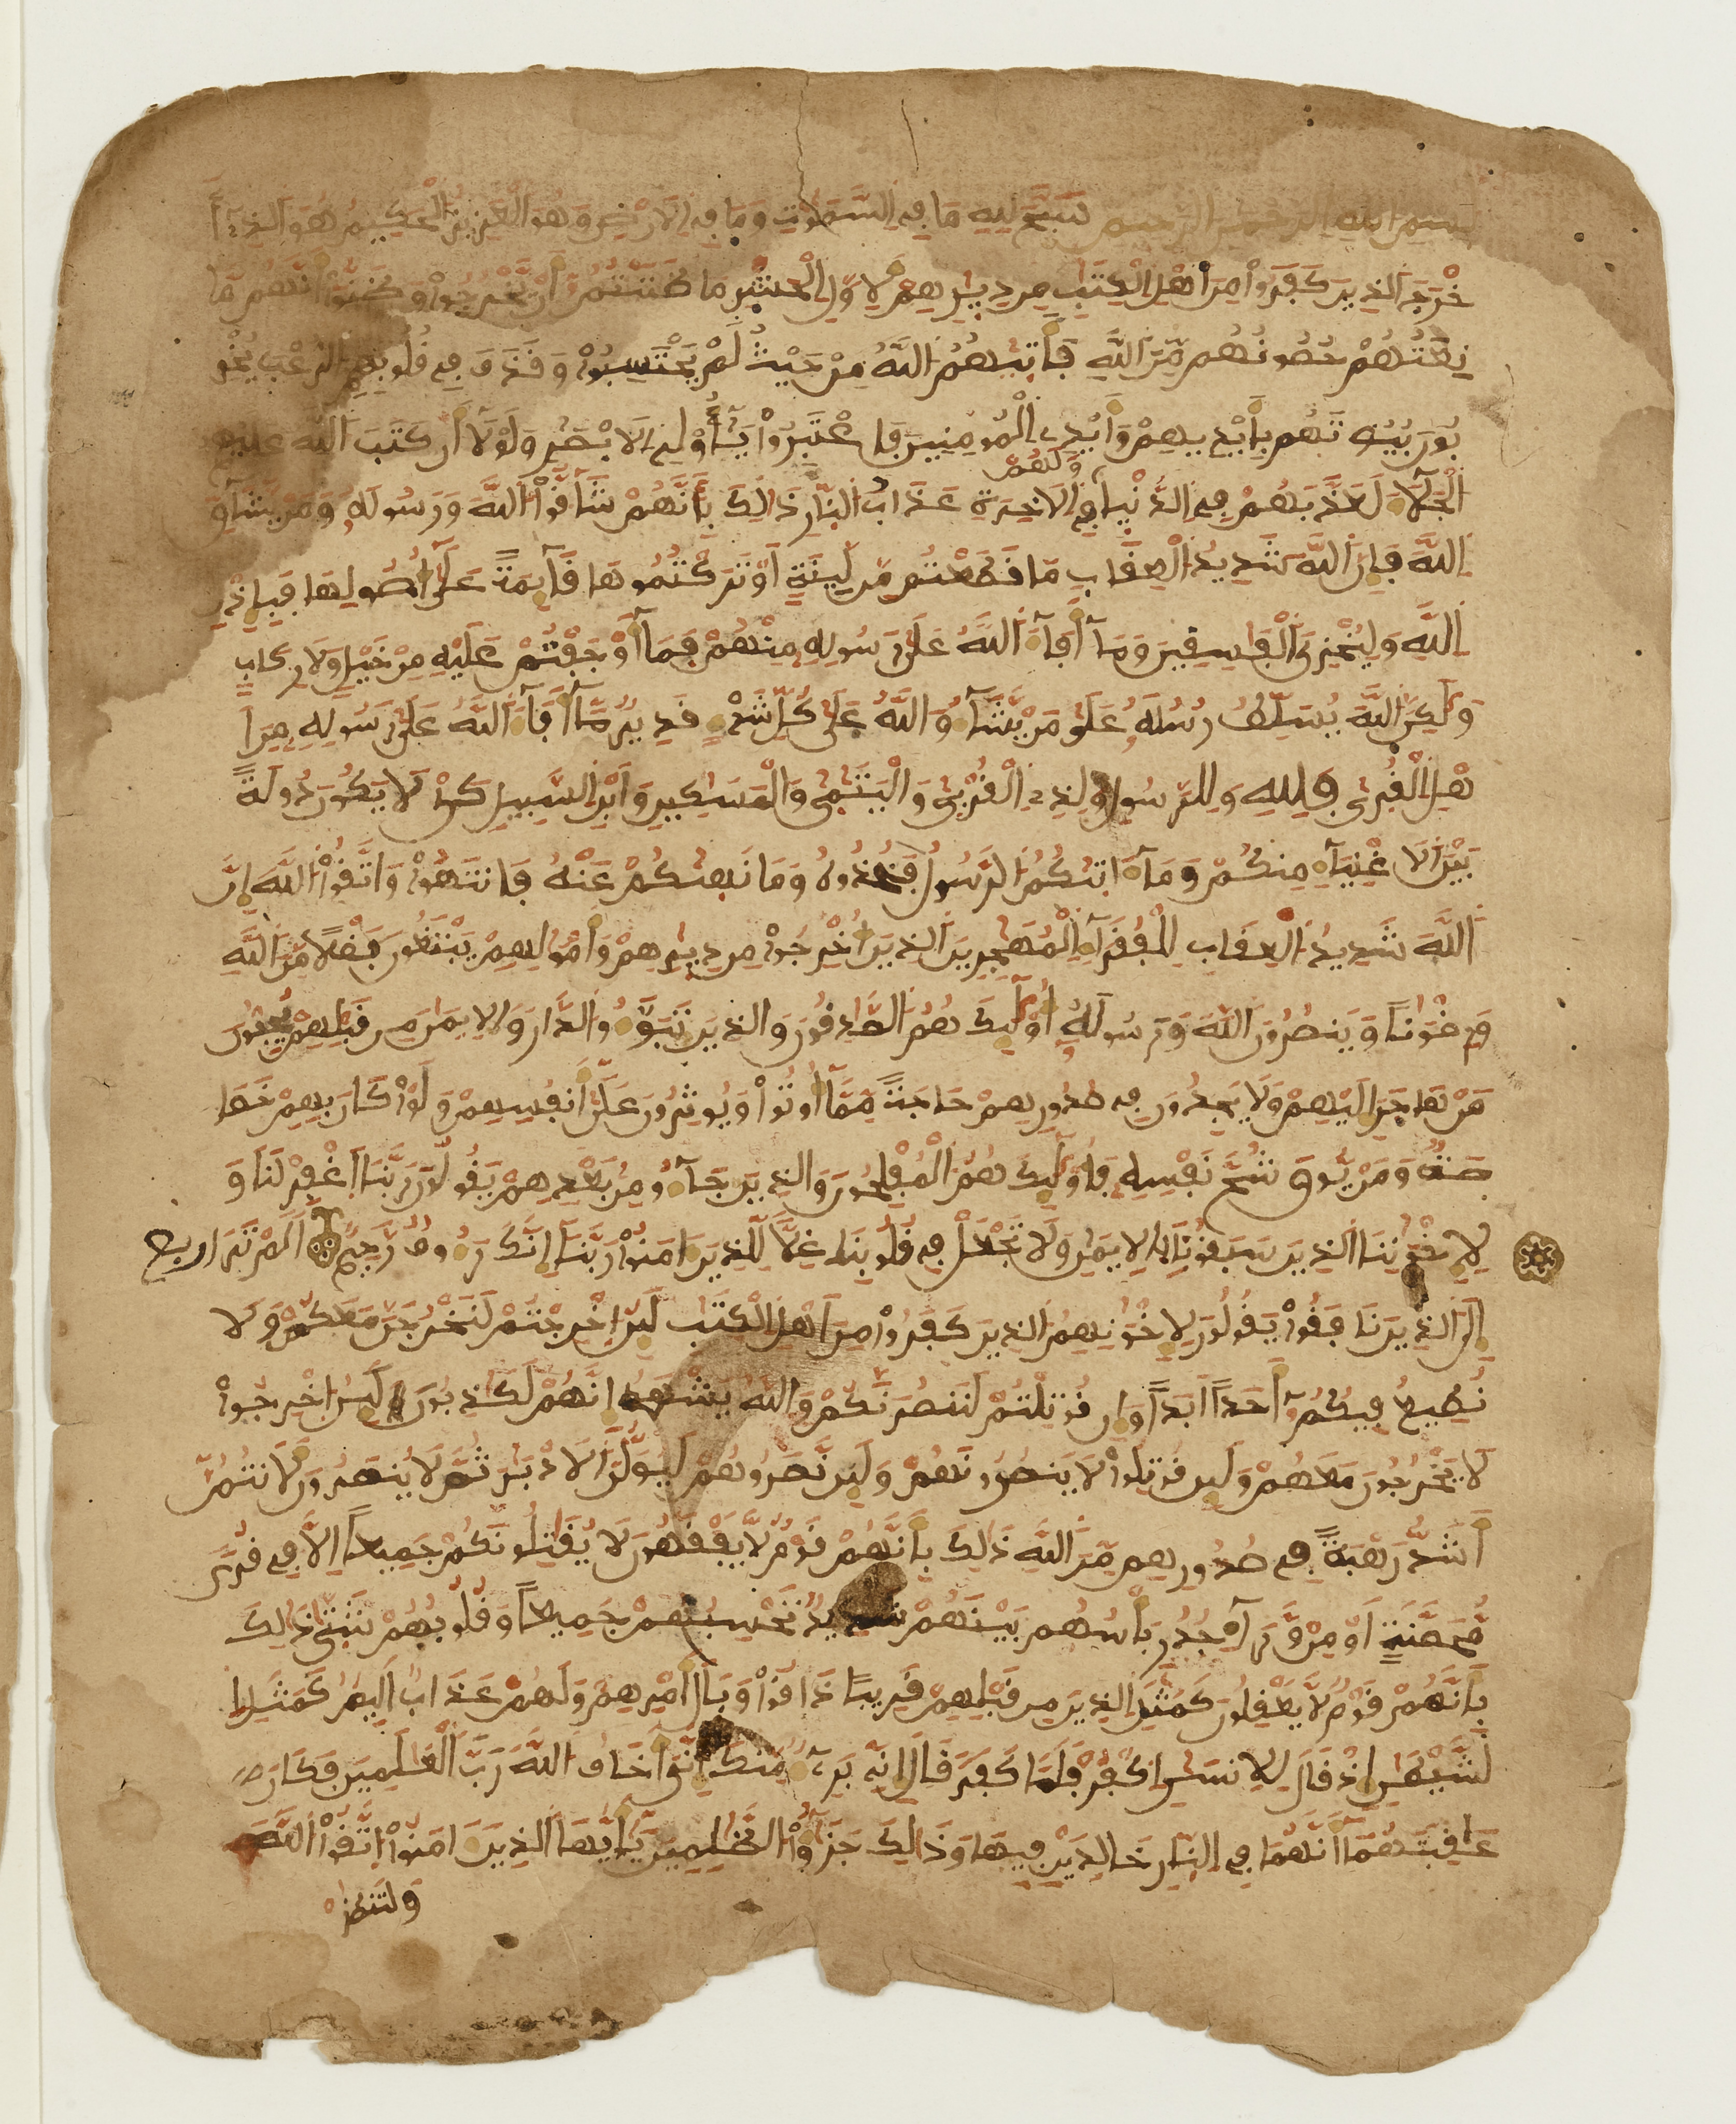 بسم الله الرحمن الرحيم سَبَّحَ لِلهِ مَا فِي السَّمَٰوَٰتِ وَمَا فِي الَارْضِ وَهُوَ الْعَزِيزُ الْحَكِيمُ هُوَ الذِے أَ
خْرَجَ الذِينَ كَفَرُواْ مِنَ اَهْلِ الْكِتَٰبِ مِن دِيٰرِهِمْ لِأَوَّلِ الْحَشْرِ مَا ظَنَنتُمُ أَنْ يَّخْرُجُواْ وَظَنُّواْ أَنَّهُم مَّا
نِعَتُهُمْ حُصُونُهُم مِّنَ اللَّهِ فَأَتٰىٰهُمُ اللَّهُ مِنْ حَيْثُ لَمْ يَحْتَسِبُواْ وَقَذَفَ فِي قُلُوبِهِمُ الرُّعْبَ يُخْرِ
بُونَ بُيُوتَهُم بِأَيْدِيهِمْ وَأَيْدِے الْمُومِنِينَ فَاعْتَبِرُواْ يَٰٓأُوْلِے الَابْصٰرِ وَلَوْلَا أَن كَتَبَ اللَّهُ عَلَيْهِمُ
الْجَلَآءَ لَعَذَّبَهُمْ فِي الدُّنْيا وَلَهُمْ فِي الَاخِرَةِ عَذَابُ النّارِ ذَٰلِكَ بِأَنَّهُمْ شَآقُّواْ اللَّهَ وَرَسُولَهُ وَمَنْ يُّشَآقِّ
اللَّهَ فَإِنَّ اللَّهَ شَدِيدُ الْعِقَابِ مَا قَطَعْتُم مِّن لِّينَةٍ اَوْ تَرَكْتُمُوهَا قَآئِمَةً عَلَىٰٓ أُصُولِهَا فَبِإِذْنِ
اللَّهِ وَلِيُخْزِيَ الْفَٰسِقِينَ وَمَآ أَفَآءَ اللَّهُ عَلَىٰ رَسُولِهِ مِنْهُمْ فَمَآ أَوْجَفْتُمْ عَلَيْهِ مِنْ خَيْلٍ وَلَا رِكَابٍ
وَلَٰكِنَّ اللَّهَ يُسَلِّطُ رُسُلَهُ عَلَىٰ مَنْ يَّشَآءُ وَاللَّهُ عَلَىٰ كُلِّ شَےْءٍ قَدِيرٌ مَّآ أَفَآءَ اللَّهُ عَلَىٰ رَسُولِهِ مِنَ اَ
هْلِ الْقُرٰىٰ فَلِلهِ وَلِلرَّسُولِ وَلِذِے الْقُرْبٰىٰ وَالْيَتَٰمٰىٰ وَالْمَسَٰكِينِ وَابْنِ السَّبِيلِ كَےْ لَا يَكُونَ دُولَةً
بَيْنَ الَاغْنِيَآءِ مِنكُمْ وَمَآ ءَاتٰىٰكُمُ الرَّسُولُ فَخُذُوهُ وَمَا نَهٰىٰكُمْ عَنْهُ فَانتَهُواْ وَاتَّقُواْ اللَّهَ إِنَّ
اللَّهَ شَدِيدُ الْعِقَابِ لِلْفُقَرَآءِ الْمُهَٰجِرِينَ الذِينَ أُخْرِجُواْ مِن دِيٰرِهِمْ وَأَمْوَٰلِهِمْ يَبْتَغُونَ فَضْلًا مِّنَ اللَّهِ
وَرِضْوَٰنًا وَيَنصُرُونَ اللَّهَ وَرَسُولَهُ أُوْلَٰٓئِكَ هُمُ الصَّٰدِقُونَ وَالذِينَ تَبَوَّءُو الدَّارَ وَالِايمَٰنَ مِن قَبْلِهِمْ يُحِبُّونَ
مَنْ هَاجَرَ إِلَيْهِمْ وَلَا يَجِدُونَ فِي صُدُورِهِمْ حَاجَةً مِّمَّآ أُوتُواْ وَيُوثِرُونَ عَلَىٰٓ أَنفُسِهِمْ وَلَوْ كَانَ بِهِمْ خَصَا
صَةٌ وَمَنْ يُّوقَ شُحَّ نَفْسِهِ فَأُوْلَٰٓئِكَ هُمُ الْمُفْلِحُونَ وَالذِينَ جَآءُو مِنۢ بَعْدِهِمْ يَقُولُونَ رَبَّنَا اَغْفِرْ لَنَا وَ
لِإِخْوَٰنِنَا الذِينَ سَبَقُونَا بِالِايمَٰنِ وَلَا تَجْعَلْ فِي قُلُوبِنَا غِلًّا لِّلذِينَ ءَامَنُواْ رَبَّنَآ إِنَّكَ رَءُوفٌ رَّحِيمٌ اَلَمْ تَرَ اربع
إِلَى الذِينَ نَافَقُواْ يَقُولُونَ لِإِخْوَٰنِهِمُ الذِينَ كَفَرُواْ مِنَ اَهْلِ الْكِتَٰبِ لَئِنُ اخْرِجْتُمْ لَنَخْرُجَنَّ مَعَكُمْ وَلَا
نُطِيعُ فِيكُمُ أَحَداً اَبَداً وَإِن قُوتِلْتُمْ لَنَنصُرَنَّكُمْ وَاللَّهُ يَشْهَدُ إِنَّهُمْ لَكَٰذِبُونَ لَئِنُ اخْرِجُواْ
لَا يَخْرُجُونَ مَعَهُمْ وَلَئِن قُوتِلُواْ لَا يَنصُرُونَهُمْ وَلَئِن نَّصَرُوهُمْ لَيُوَلُّنَّ الَادْبَٰرَ ثُمَّ لَا يُنصَرُونَ لَأَنتُمُ
أَشَدُّ رَهْبَةً فِي صُدُورِهِم مِّنَ اللَّهِ ذَٰلِكَ بِأَنَّهُمْ قَوْمٌ لَّا يَفْقَهُونَ لَا يُقَٰتِلُونَكُمْ جَمِيعاً اِلَّا فِي قُرىً
مُّحَصَّنَةٍ اَوْ مِنْ وَّرَآءِ جُدُرٍ بَأْسُهُم بَيْنَهُمْ شَدِيدٌ تَحْسِبُهُمْ جَمِيعاً وَقُلُوبُهُمْ شَتّٰىٰ ذَٰلِكَ
بِأَنَّهُمْ قَوْمٌ لَّا يَعْقِلُونَ كَمَثَلِ الذِينَ مِن قَبْلِهِمْ قَرِيبًا ذَاقُواْ وَبَالَ أَمْرِهِمْ وَلَهُمْ عَذَابٌ اَلِيمٌ كَمَثَلِ ا
لشَّيْطَٰنِ إِذْ قَالَ لِلِانسَٰنِ اِكْفُرْ فَلَمَّا كَفَرَ قَالَ إِنِّے بَرِےٓءٌ مِّنكَ إِنِّيَ أَخَافُ اللَّهَ رَبَّ الْعَٰلَمِينَ فَكَانَ
عَٰقِبَتَهُمَآ أَنَّهُمَا فِي النّارِ خَٰلِدَيْنِ فِيهَا وَذَٰلِكَ جَزَٰٓؤُاْ الظَّٰلِمِينَ يَٰٓأَيُّهَا الذِينَ ءَامَنُواْ اتَّقُواْ اللَّهَ
وَلْتَنظُر